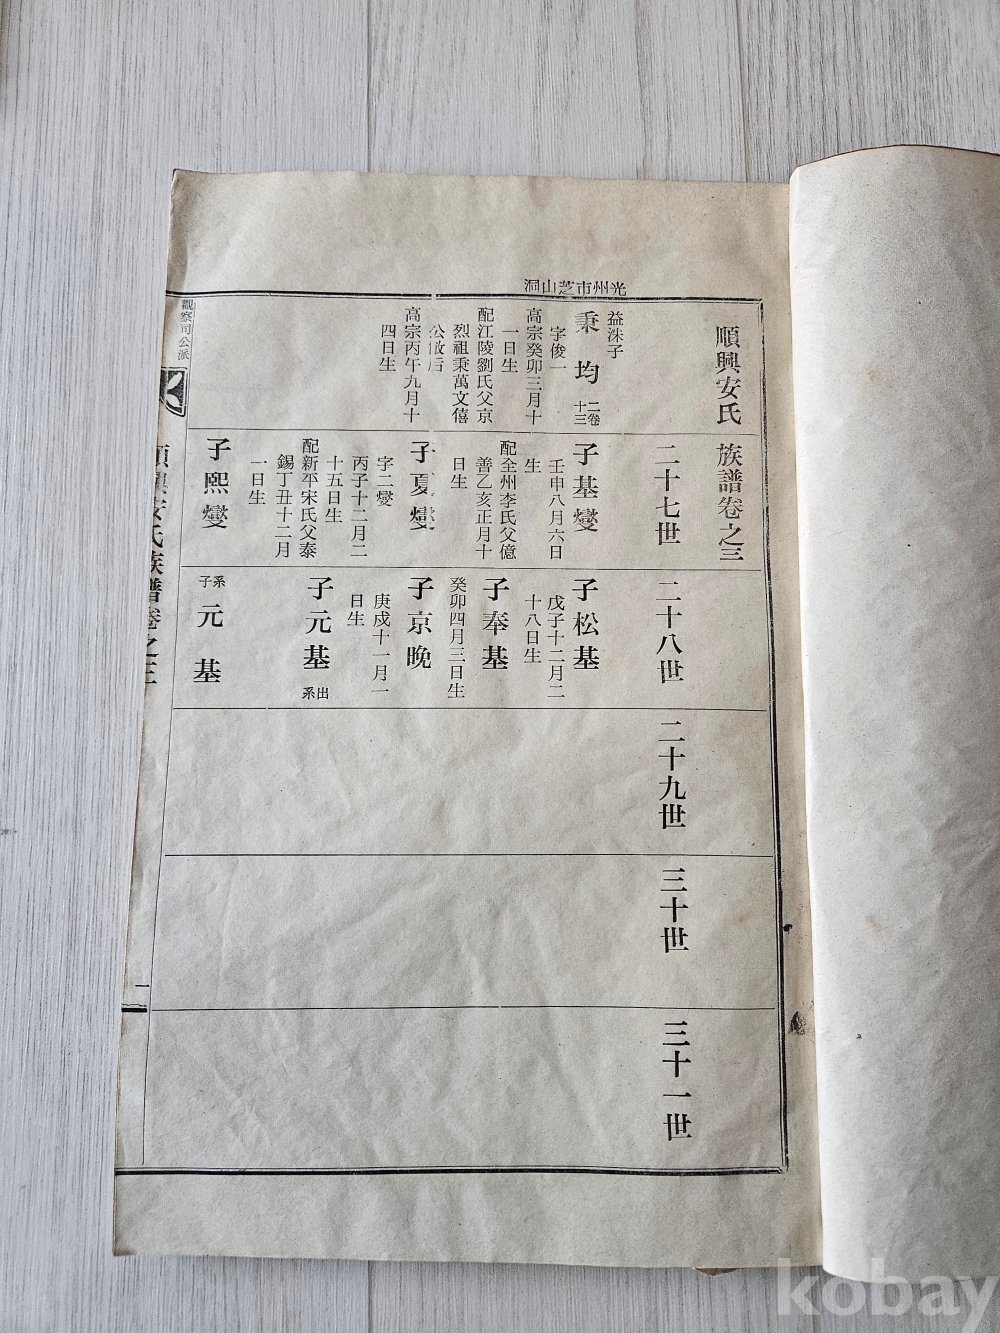 光州市芝山洞
順興安氏族譜卷之三
益洙子
秉均 二卷十三
字俊一
高宗癸卯三月十
一日生
配江陵劉氏父京
烈祖秉萬文僖
公敞后
高宗丙午九月十
四日生
二十七世
子基燮
壬申八月六日
生
配全州李氏父億
善乙亥正月十
日生
子夏燮
字二燮
丙子十二月二
十五日生
配新平宋氏父泰
錫丁丑十二月
一日生
子熙燮
二十八世
子松基
戊子十二月二
十八日生
子奉基
癸卯四月三日生
子京晚
庚戌十一月一
日生
子元基 出系
系子
元基
二十九世
三十世
三十一世
觀察司公派
順興安氏族譜卷之三
一
kobay